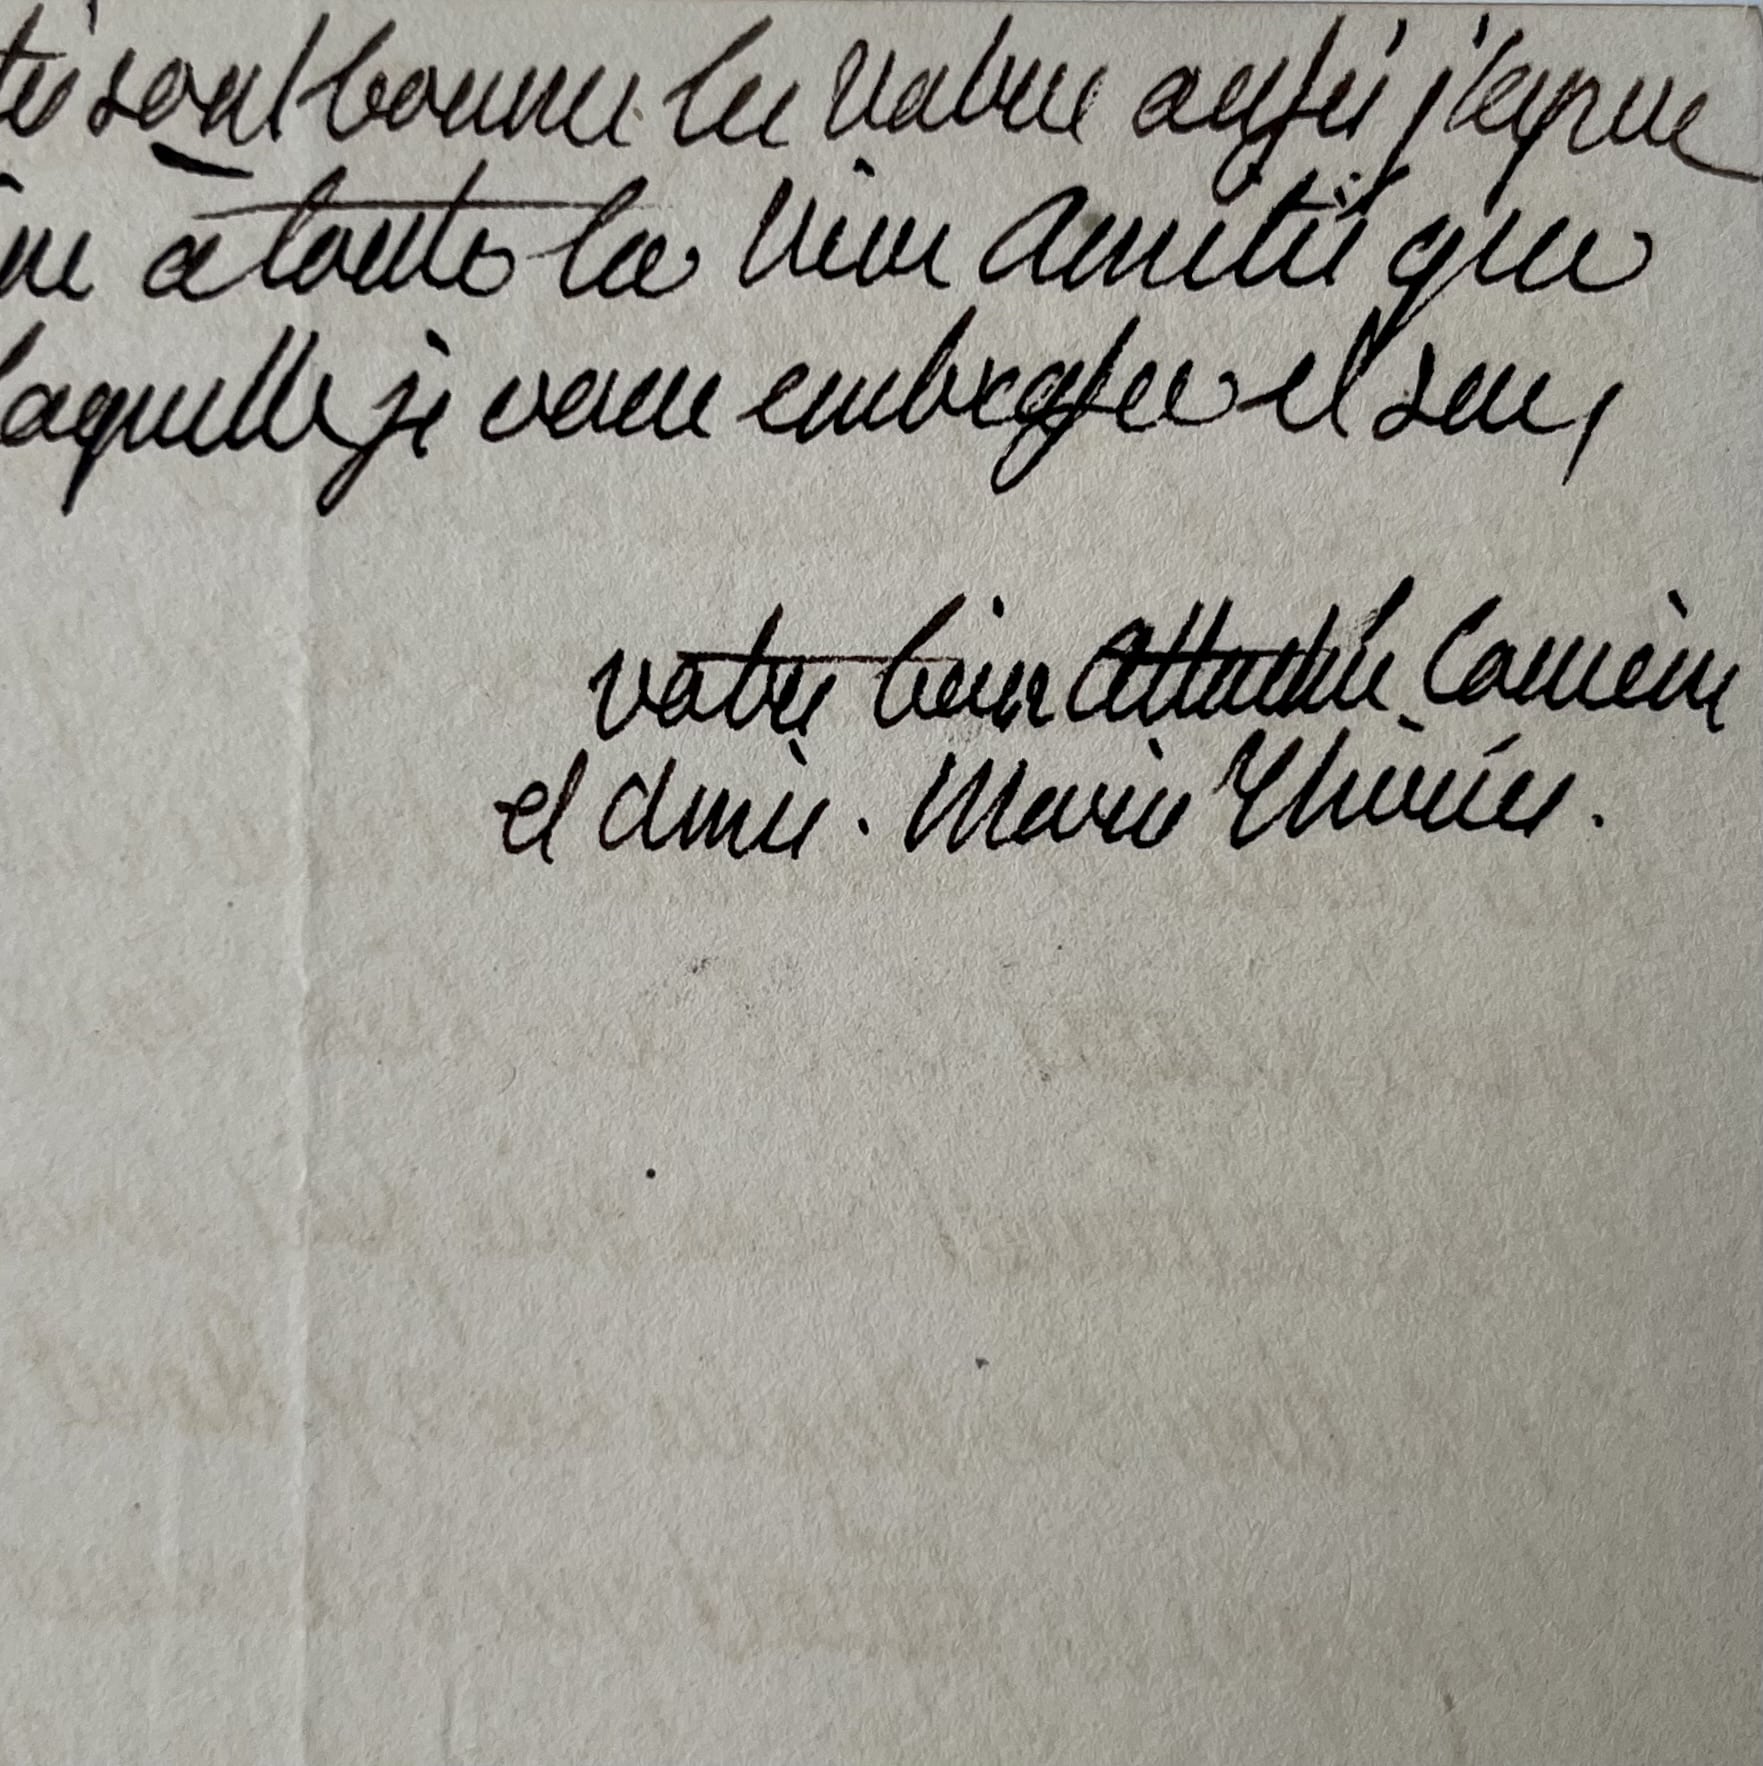 sont bonnes les votres aussi j'espere
à toute la vive amitié que
laquelle je vous embrasse et suis,
votre bien attachée Comère
et amie. Marie Thérèse.